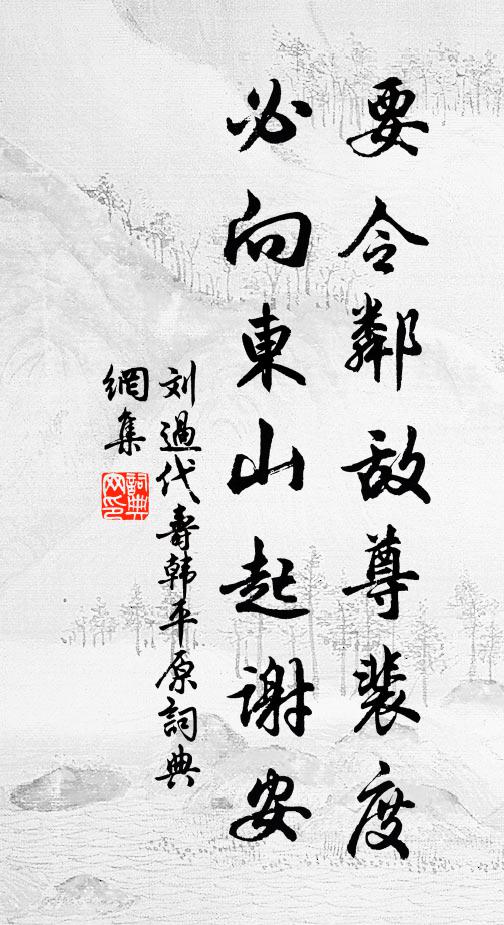 要令鄰敵尊裴度
必向東山起謝安
刘過代壽韩平原詞典
網集
詞典
网印